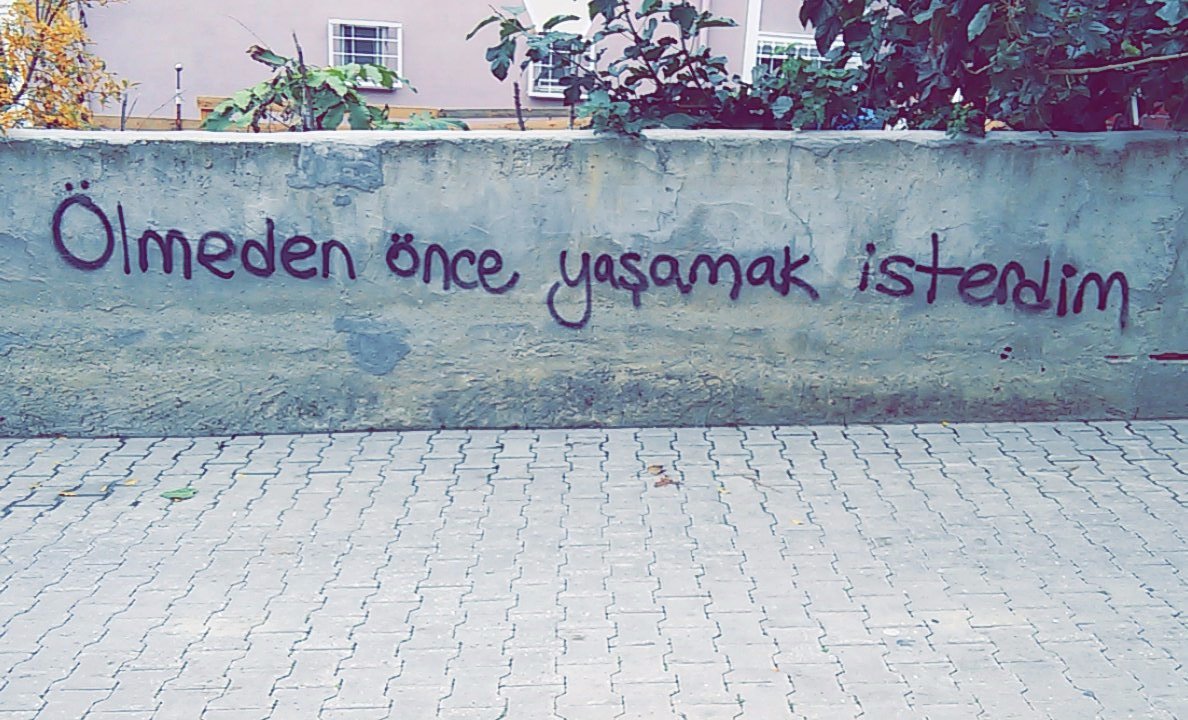 Ölmeden önce yaşamak isterdim